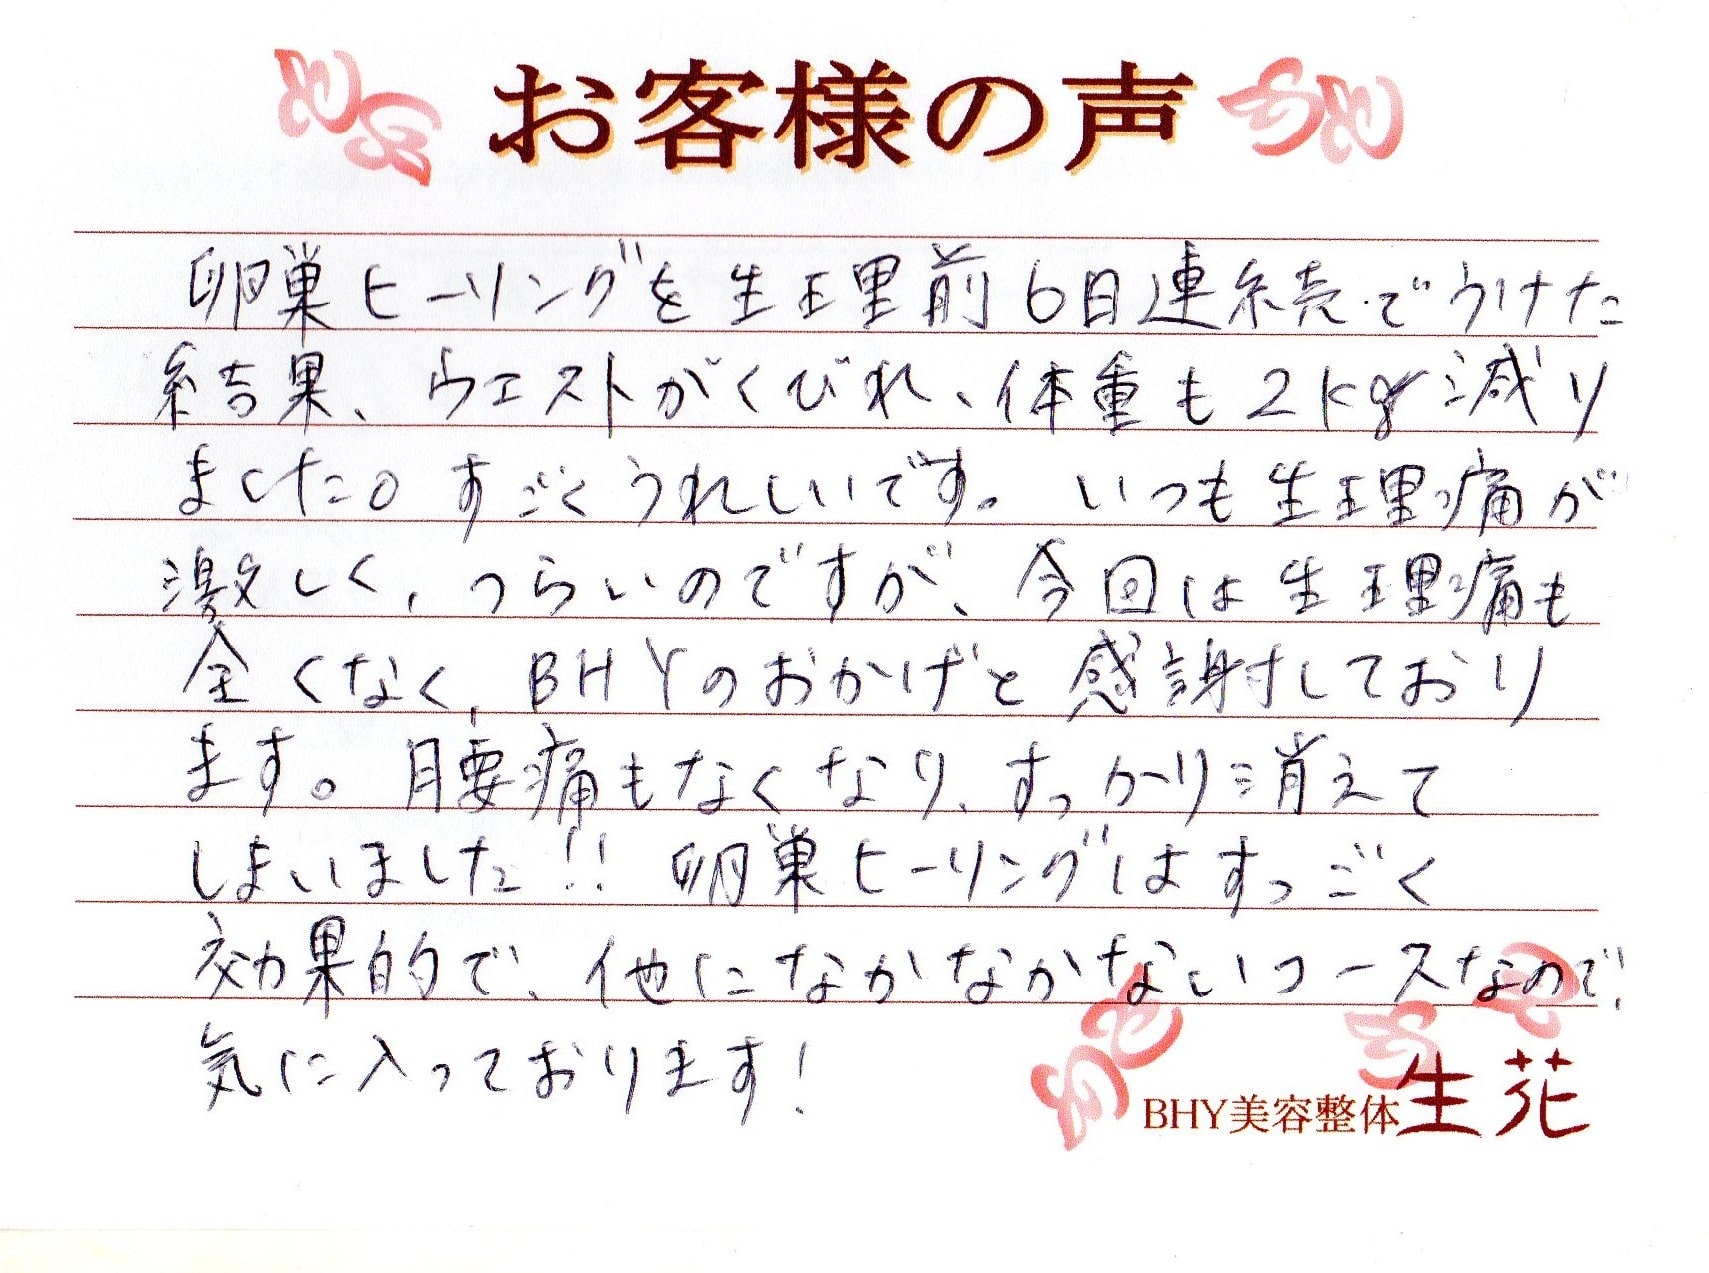 お客様の声
卵巣ヒーリングを生理前6日連続でうけた
結果、ウエストがくびれ、体重も2kg減り
ました。すごくうれしいです。いつも生理痛が
激しく、つらいのですが、今回は生理痛も
全くなく、BHYのおかげと感謝しており
ます。腰痛もなくなり、すっかり消えて
しまいました!! 卵巣ヒーリングはすっごく
効果的で、他になかなかないコースなので、
気に入っております!
BHY美容整体生花